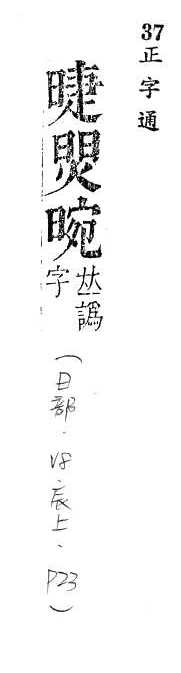 37 正字通
晼𠀤譌字
（日部．V8．辰上、P23）